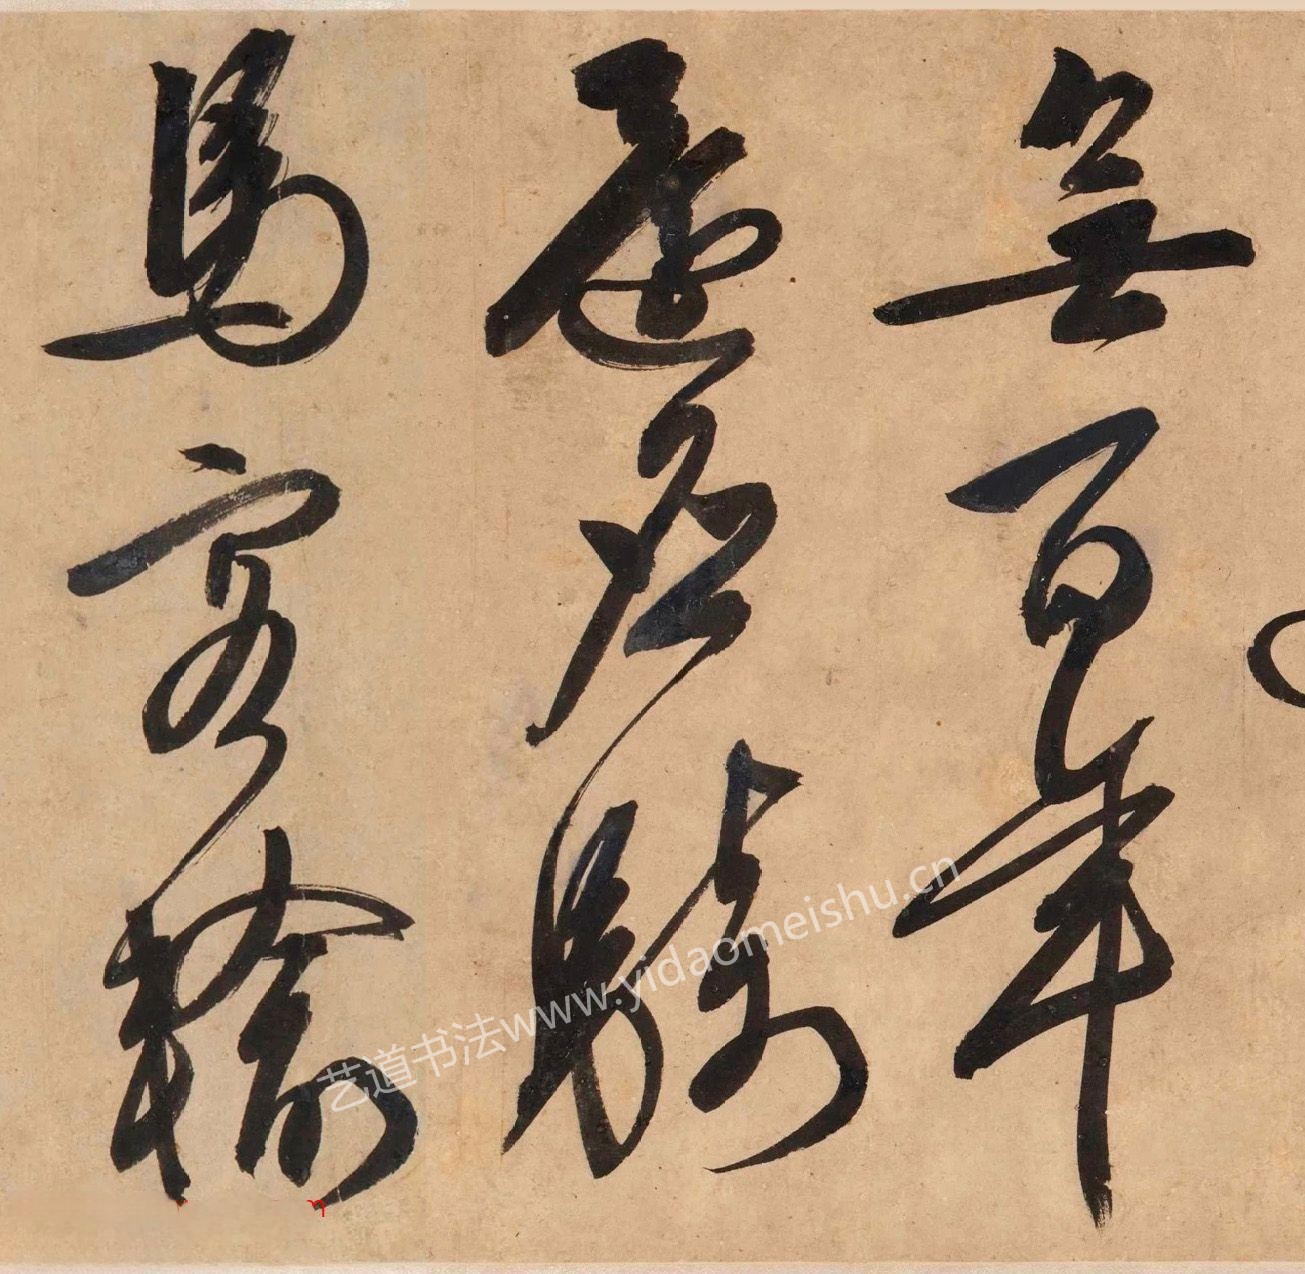 無百年
騎
馬客輸
艺道书法www.yidaomeishu.cn